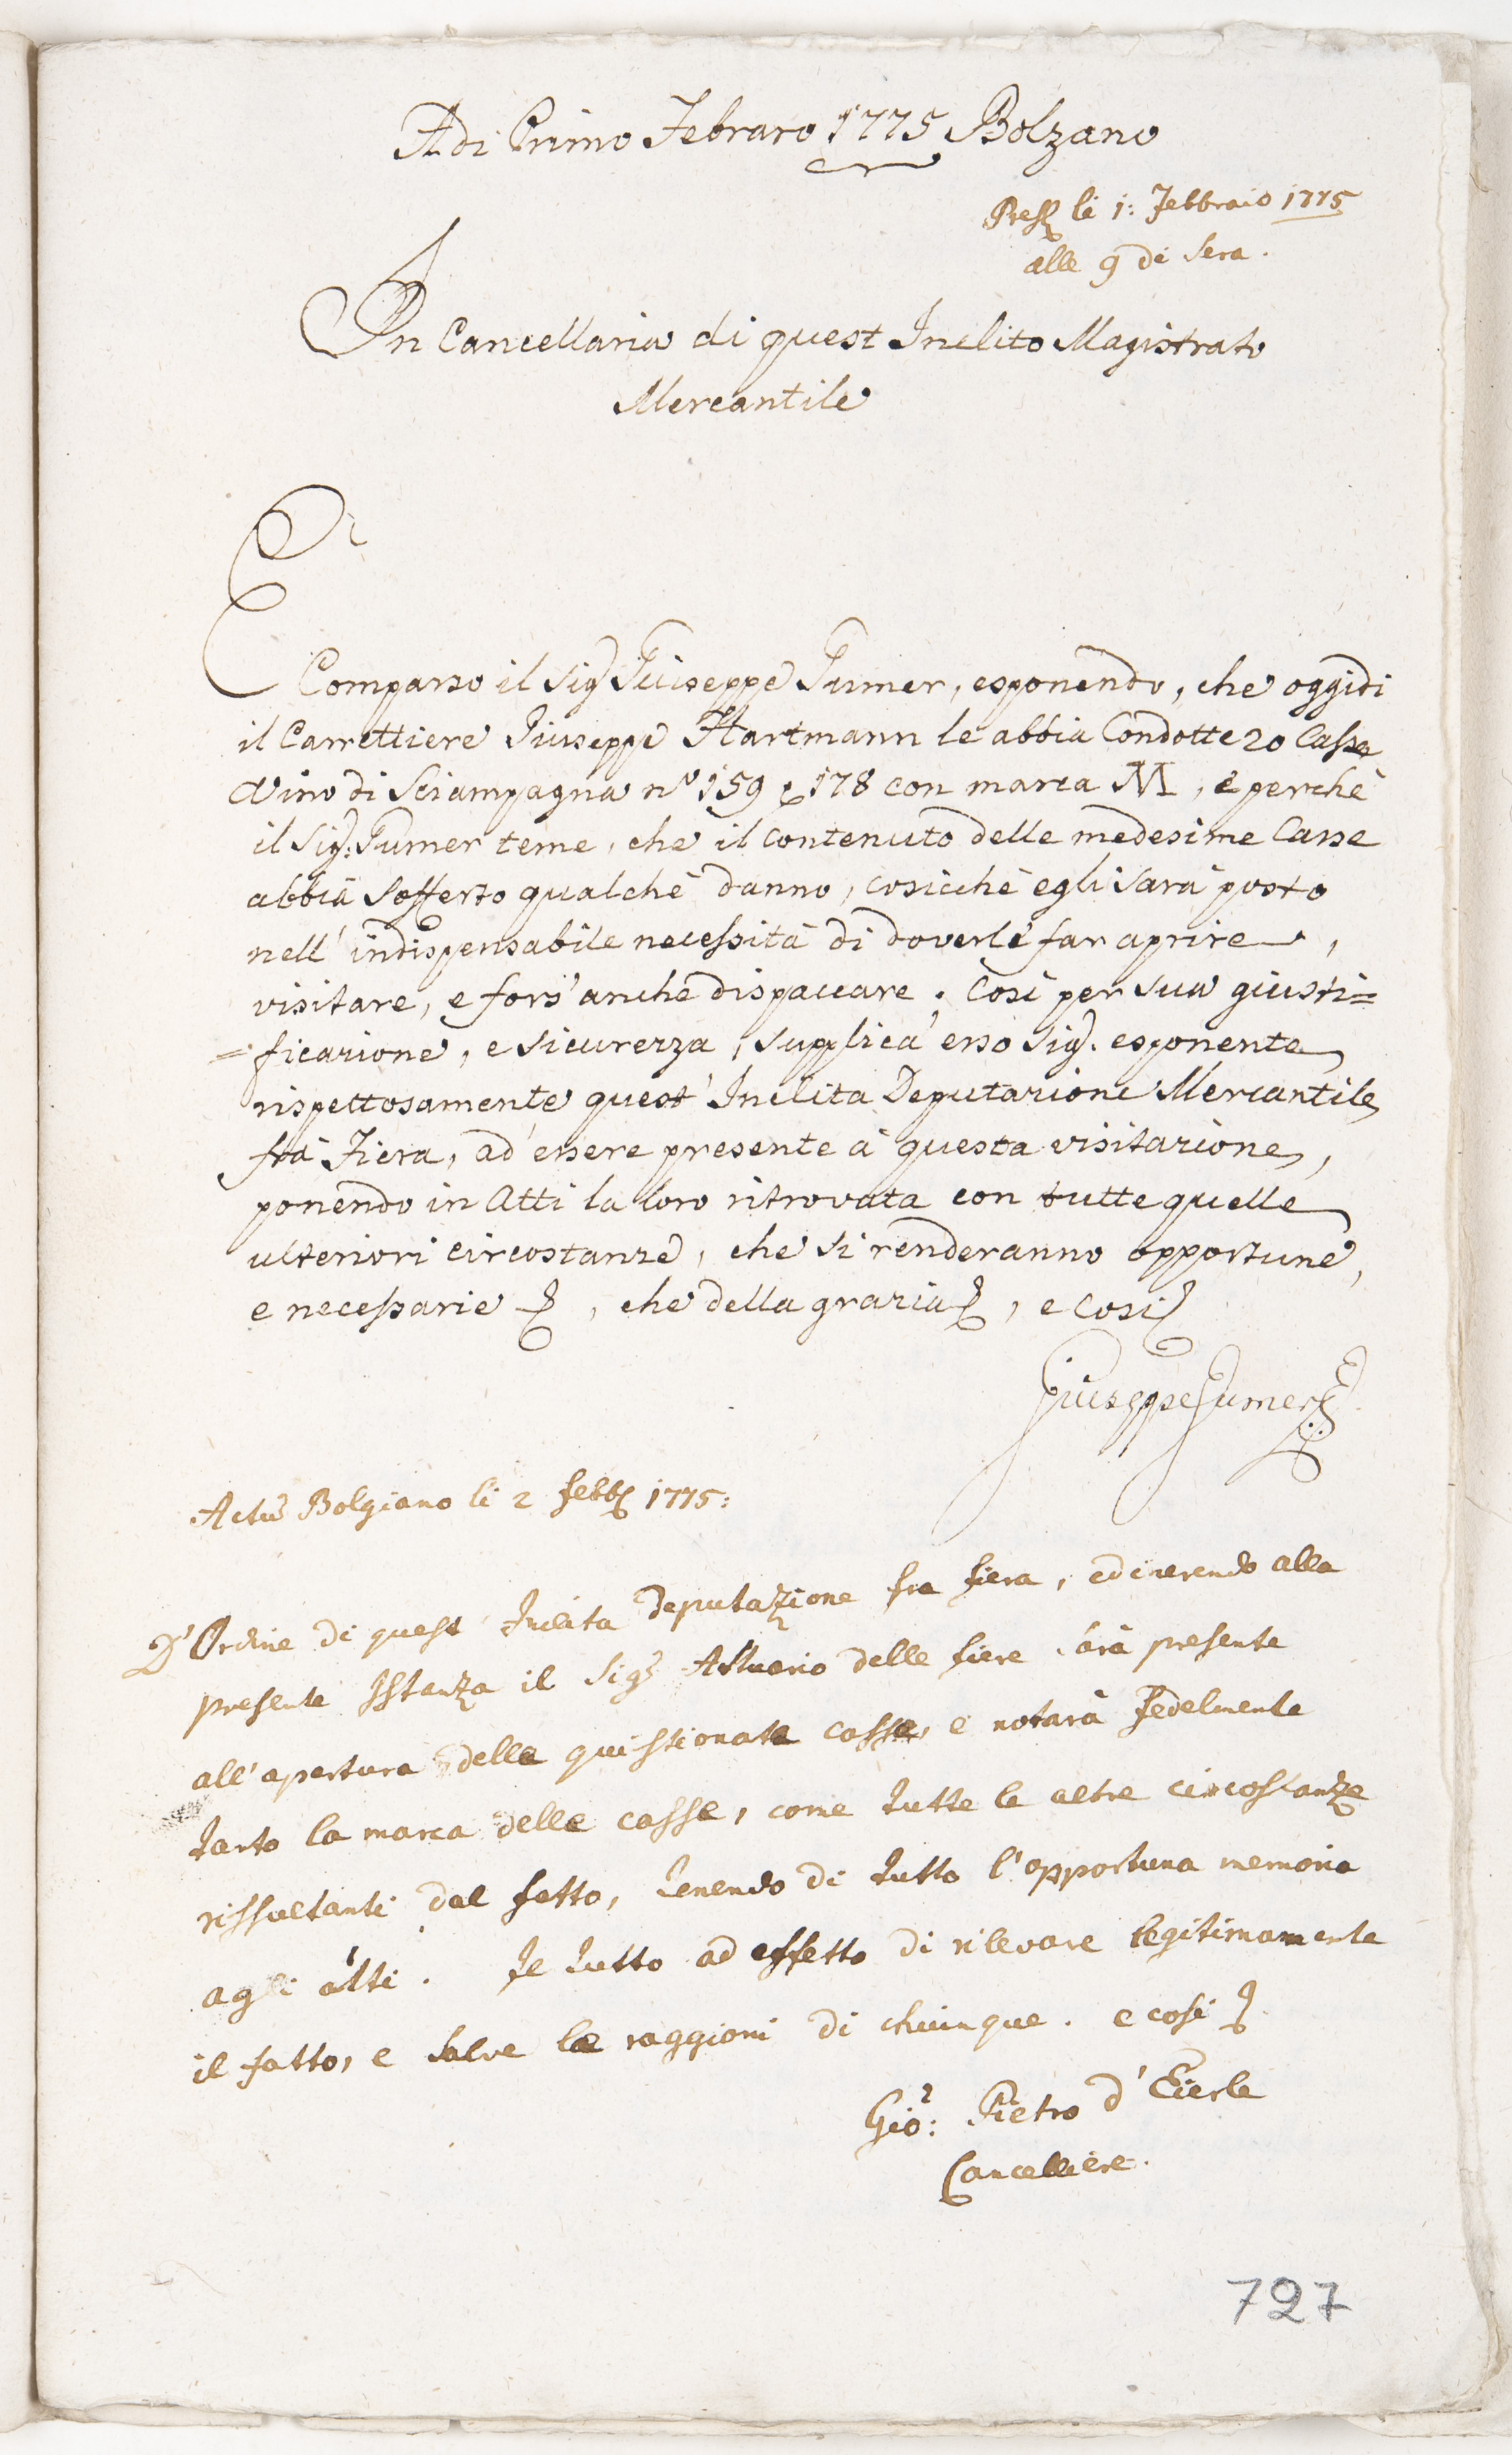 Adi Primo Febraro 1775 Bolzano
Pres. li 1: Febbraio 1775
alle 9 di Sera.
In Cancellaria di quest Inclito Magistrato
Mercantile
È
Comparso il Sig. Giuseppe Gumer, esponendo, che oggidi
il Carrettiere Giuseppe Hartmann le abbia Condotte 20 Casse
Vino di Sciampagna n° 159 e 178 con marca M, e perche
il Sig. Gumer teme, che il contenuto delle medesime Casse
abbia Sofferto qualche danno, cosicche egli sarà posto
nell' indispensabile necessità di doverle far aprire,
visitare, e fors' anche dispaccare. Cosi per sua giusti=
=ficazione, e sicurezza, supplica esso Sig. esponente
rispettosamente quest' Inclita Deputazione Mercantile
frà Fiera, ad essere presente à questa visitazione,
ponendo in Atti la loro ritrovata con tutte quelle
ulteriori circostanze, che si renderanno opportune,
e necessarie , che della grazia , e cosi
Giuseppe Gumer
Actu Bolgiano li 2 Febb 1775:
D'Ordine di quest Inclita Deputazione fra fiera, ed inerendo alla
presente Istanza il Sig. Attuario delle fiere sarà presente
all' apertura delle quistionate casse, e notarà fedelmente
tanto la marca delle casse, come tutte le altre circostanze
rissultanti dal fatto, tenendo di tutto l'opportuna memoria
agli atti. Il tutto ad effetto di rilevare legitimamente
il fatto, e salve le raggioni di chiunque. e cosi
Gio: Pietro d' Eierle
Cancelliere.
727